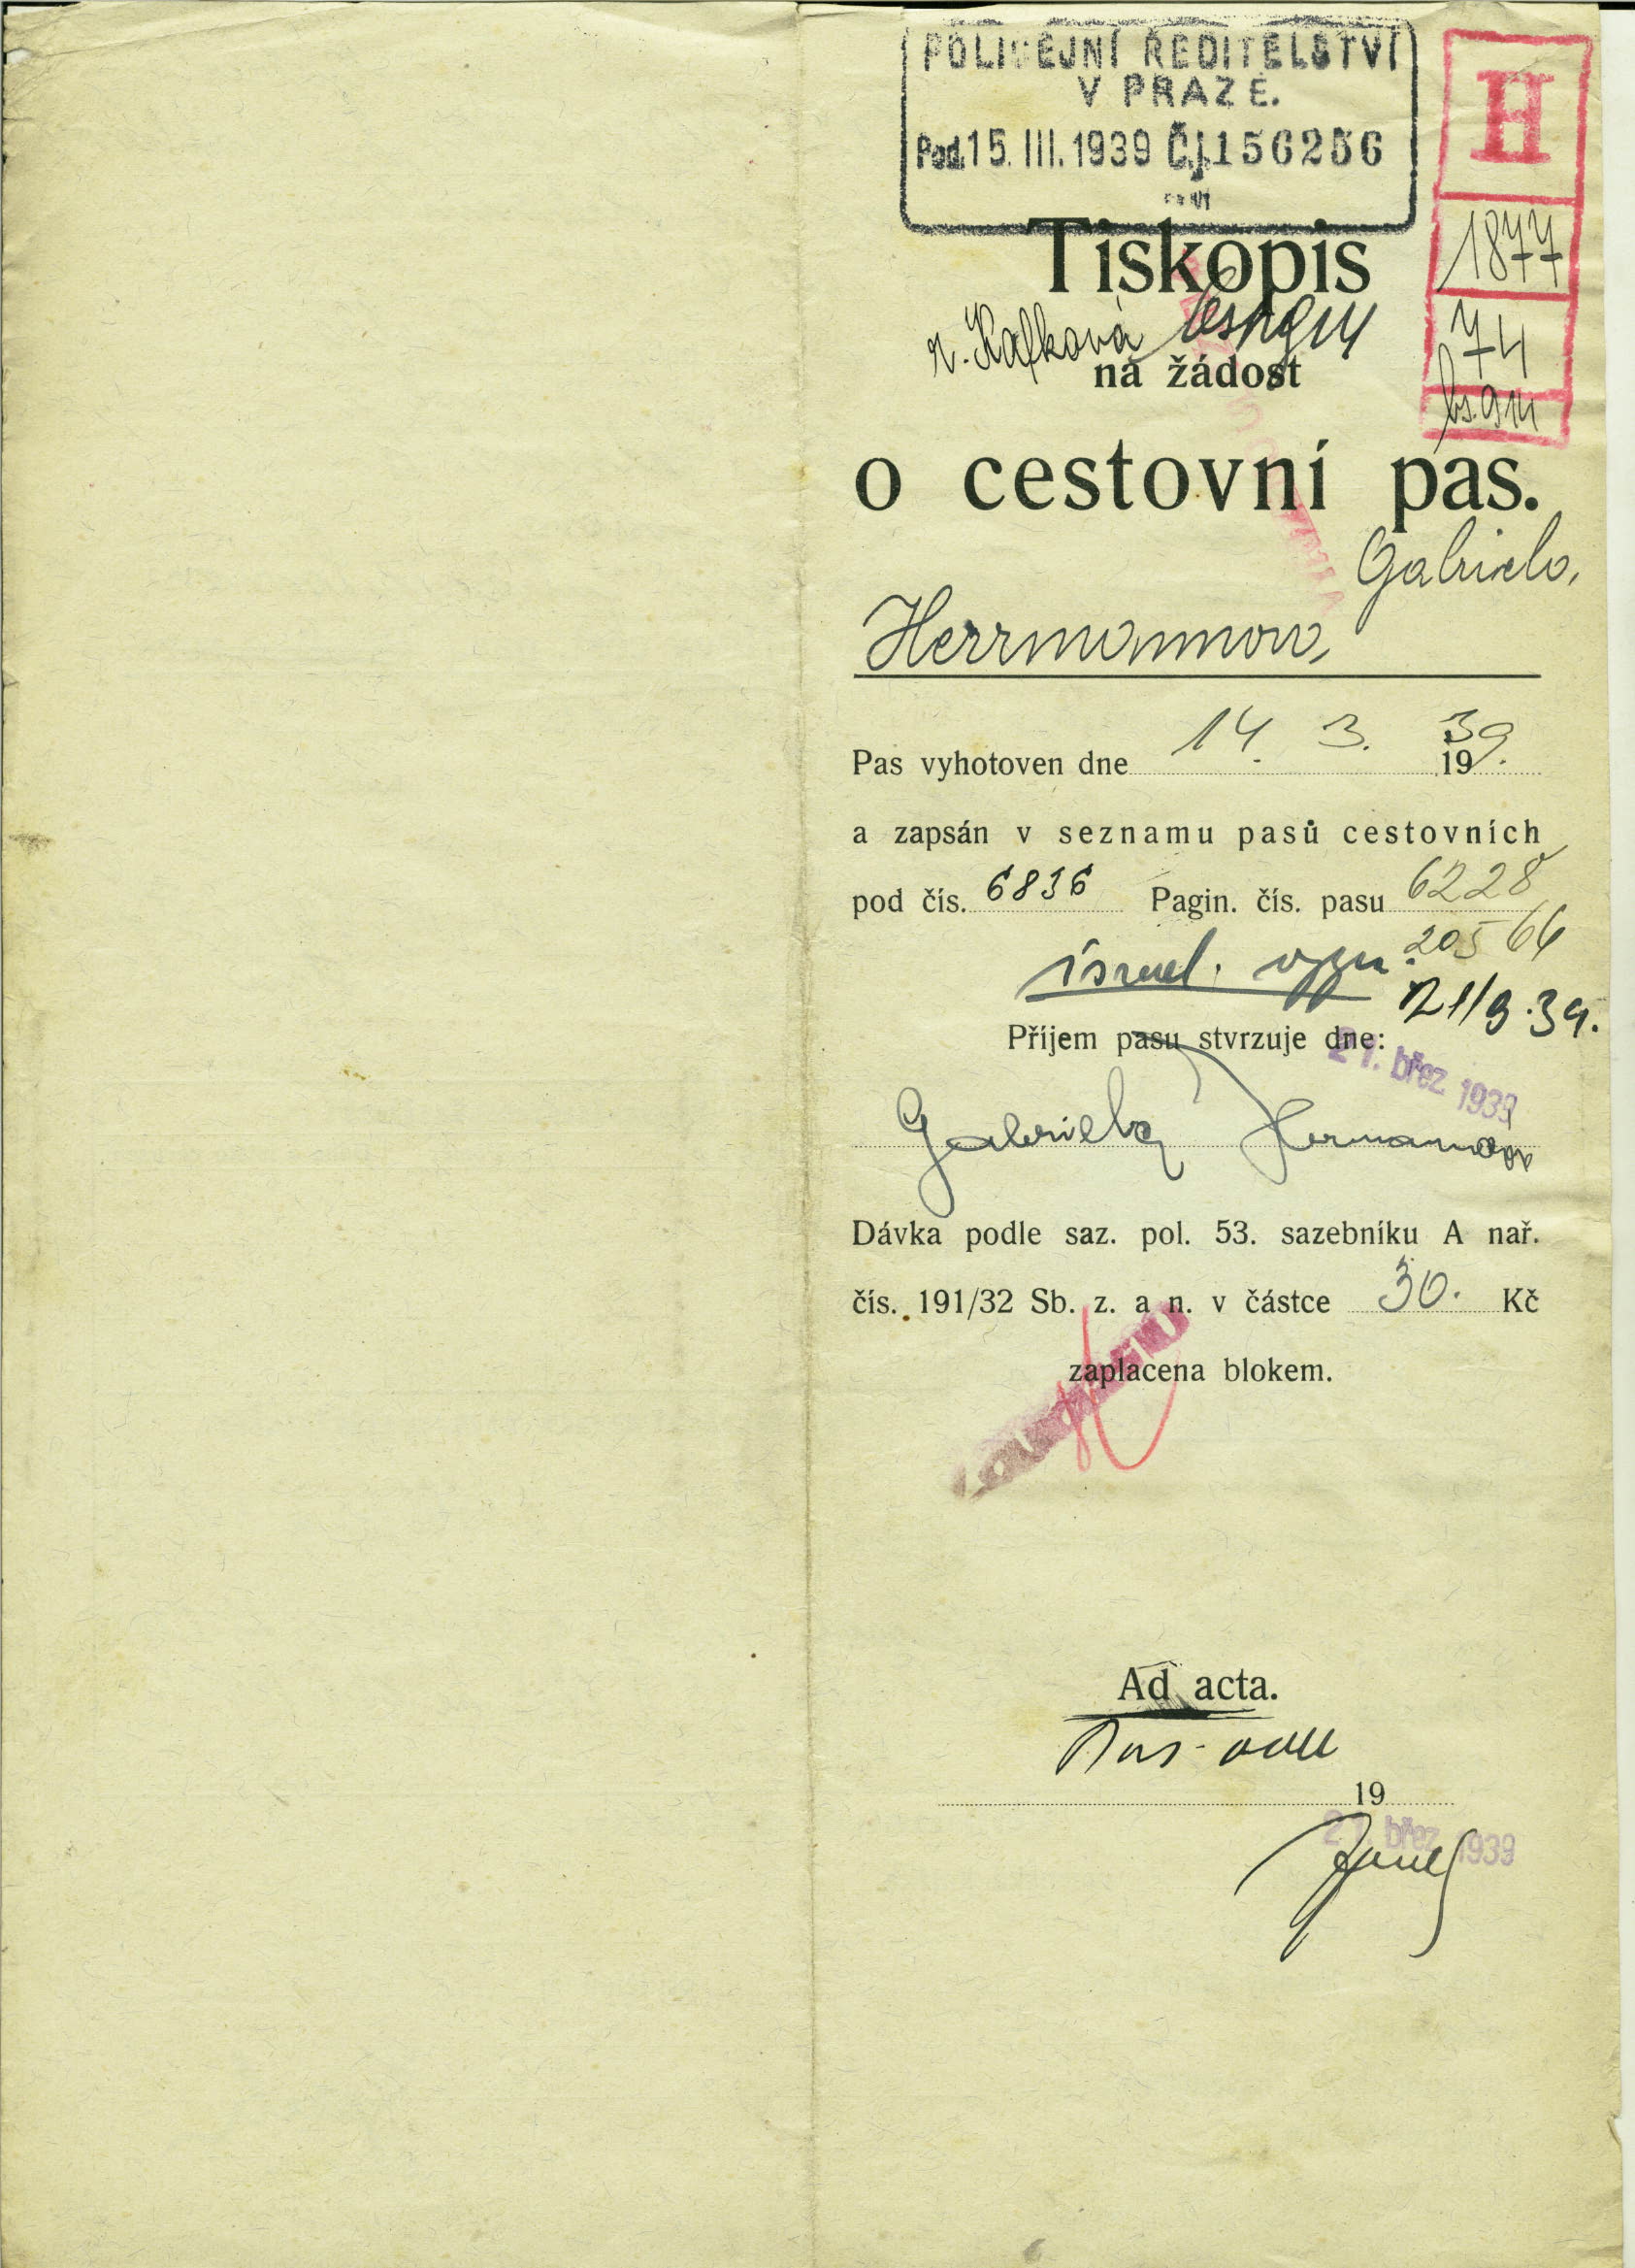 POLICEJNÍ ŘEDITELSTVÍ
V PRAZE.
Pod. 15. III. 1939 Č.j. 156256
H
1877
74
Tiskopis
r. Kafková
na žádost
o cestovní pas.
Gabriela,
Herrmannova,
Pas vyhotoven dne 14. 3. 1939.
a zapsán v seznamu pasů cestovních
pod čís. 6836 Pagin. čís. pasu 6228
20564
israel. vyzn.
21/3.39.
Příjem pasu stvrzuje dne:
21. břez 1939
Gabriela Hermannova
Dávka podle saz. pol. 53. sazebníku A nař.
čís. 191/32 Sb. z. a n. v částce 30. Kč
zaplacena blokem.
Ad acta.
19
21. břez 1939